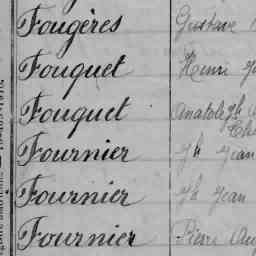 Fougères Gustave
Fouquet Henri
Fouquet Anatole Jh
Fournier Jh Jean
Fournier Jh Jean
Fournier Pierre Aug